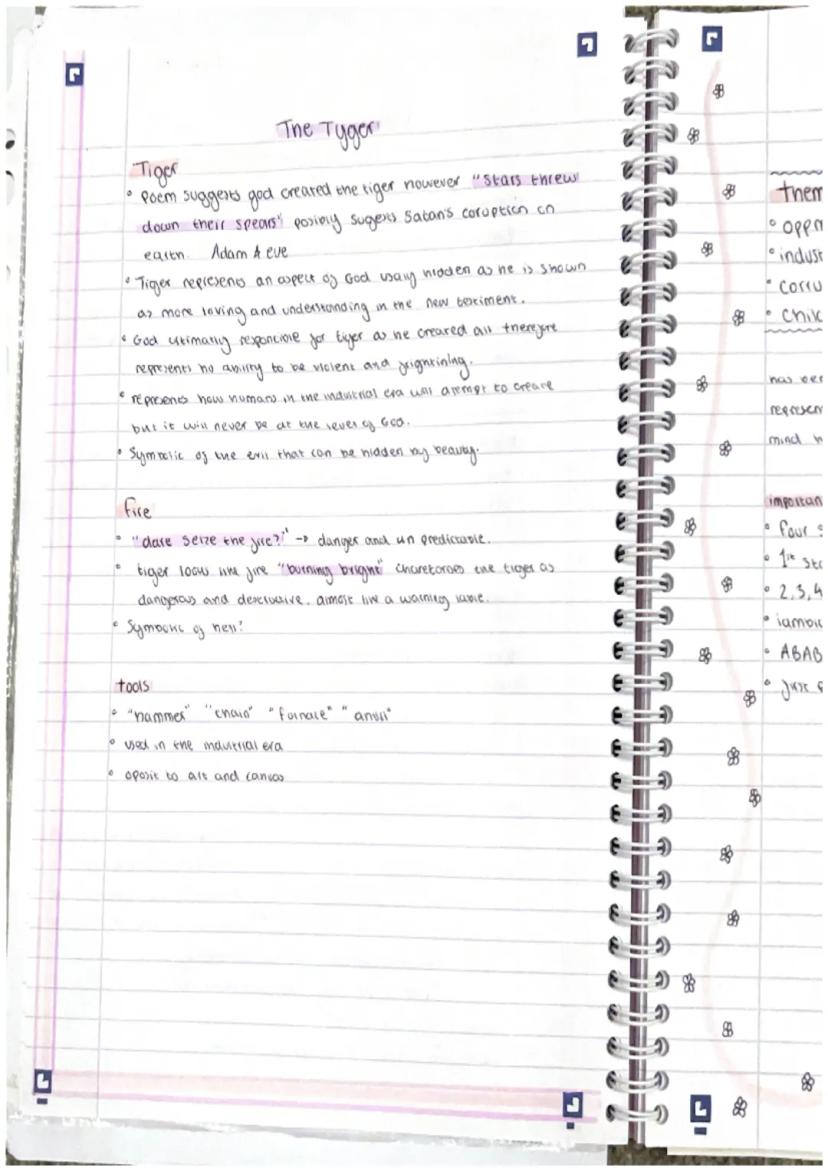 The Tyger
Tiger
• Poem suggests god created the tiger however "stars threw
down their spears" posibly sugests Satan's coruption on
earth. Adam & eve
• Tiger represents an aspect of God usaly hidden as he is shown
as more loving and understanding in the new testiment.
• God ultimatly responcible for tiger as he created all therefore
represents his ability to be violent and frightining.
• represents how humans in the industrial era will atempt to create
but it will never be at the level of God.
• Symbolic of the evil that can be hidden by beauty.
fire
• "dare seize the fire?" → danger and un predictable.
• tiger looks like fire "burning bright" the tiger as
dangerous and destructive. almost like a warning
• Symbolic of hell?
tools
• "hammer" "chain" "furnace" "anvil"
• used in the industrial era
• oposit to art and canvas
them
• oppr
• indust
• corru
• chil
has
represen
mind
importan
• four
• 1st
• 2,3,4
• iambi
• ABAB
• just